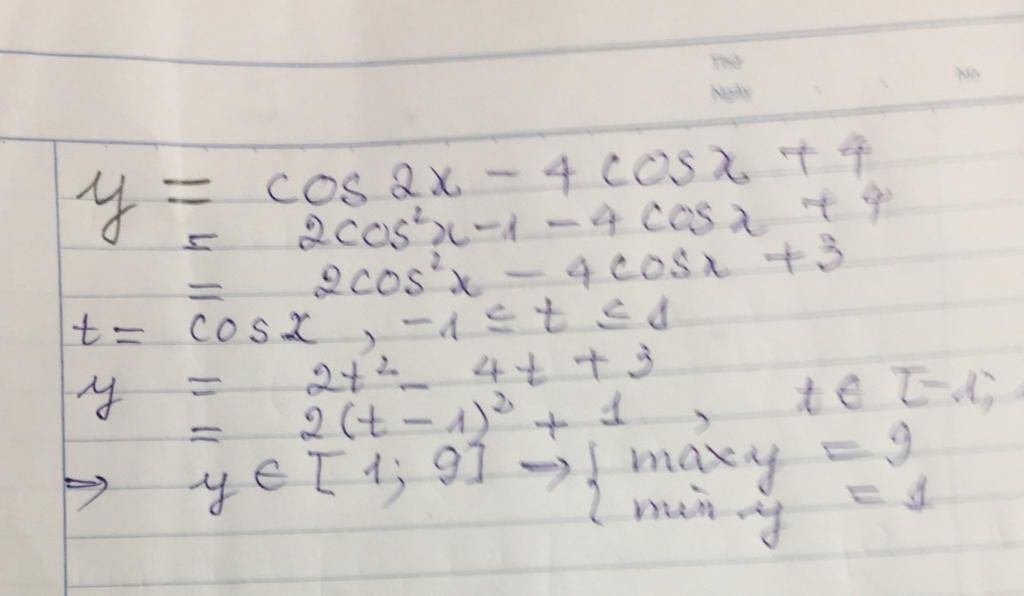 y = cos2x - 4cosx + 4
= 2cos²x - 1 - 4cosx + 4
= 2cos²x - 4cosx + 3
t = cosx, -1 ≤ t ≤ 1
y = 2t² - 4t + 3
= 2(t - 1)² + 1, t ∈ [-1;
⇒ y ∈ [1; 9] → { max y = 9
{ min y = 1